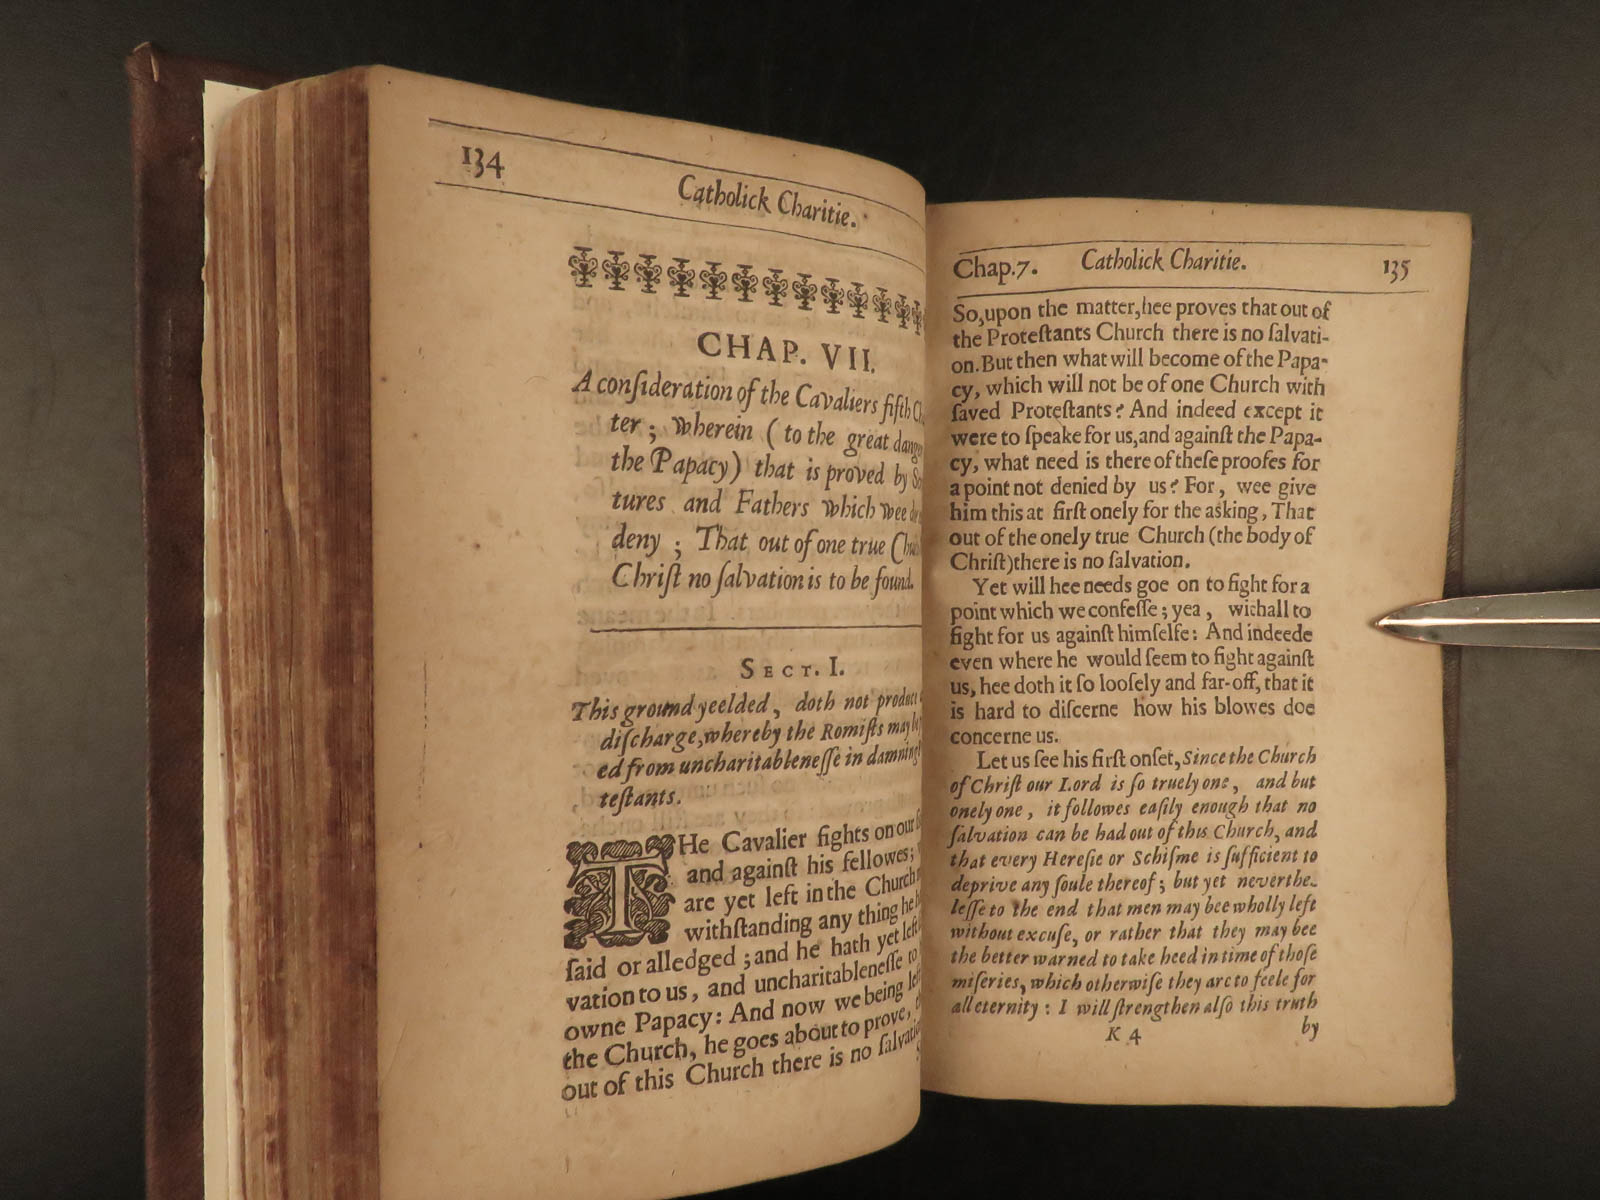 134
Catholick Charitie.
CHAP. VII.
A conſideration of the Cavaliers fifth
ter ; wherein ( to the great
the Papacy) that is proved by
tures and Fathers which wee
deny ; That out of one true
Chriſt no ſalvation is to be found.
SECT. I.
This ground yeelded, doth not produce
diſcharge, whereby the Romiſts may
ed from uncharitableneſſe in damning
teſtants.
THe Cavalier fights on our
and againſt his fellowes;
are yet left in the Church
withſtanding any thing he
ſaid or alledged ; and he hath yet left
vation to us, and uncharitableneſſe to
owne Papacy: And now we being
the Church, he goes about to prove,
out of this Church there is no
Chap.7. Catholick Charitie. 135
So, upon the matter, hee proves that out of
the Proteſtants Church there is no ſalvati-
on. But then what will become of the Papa-
cy, which will not be of one Church with
ſaved Proteſtants? And indeed except it
were to ſpeake for us, and againſt the Papa-
cy, what need is there of theſe proofes for
a point not denied by us? For, wee give
him this at firſt onely for the asking, That
out of the onely true Church (the body of
Chriſt) there is no ſalvation.
Yet will hee needs goe on to fight for a
point which we confeſſe; yea, withall to
fight for us againſt himſelfe: And indeede
even where he would ſeem to fight againſt
us, hee doth it ſo looſely and far-off, that it
is hard to diſcerne how his blowes doe
concerne us.
Let us ſee his firſt onſet, Since the Church
of Chriſt our Lord is ſo truely one, and but
onely one, it followes eaſily enough that no
ſalvation can be had out of this Church, and
that every Hereſie or Schiſme is ſufficient to
deprive any ſoule thereof; but yet neverthe-
leſſe to the end that men may bee wholly left
without excuſe, or rather that they may bee
the better warned to take heed in time of thoſe
miſeries, which otherwiſe they are to feele for
all eternity: I will ſtrengthen alſo this truth
K 4 by